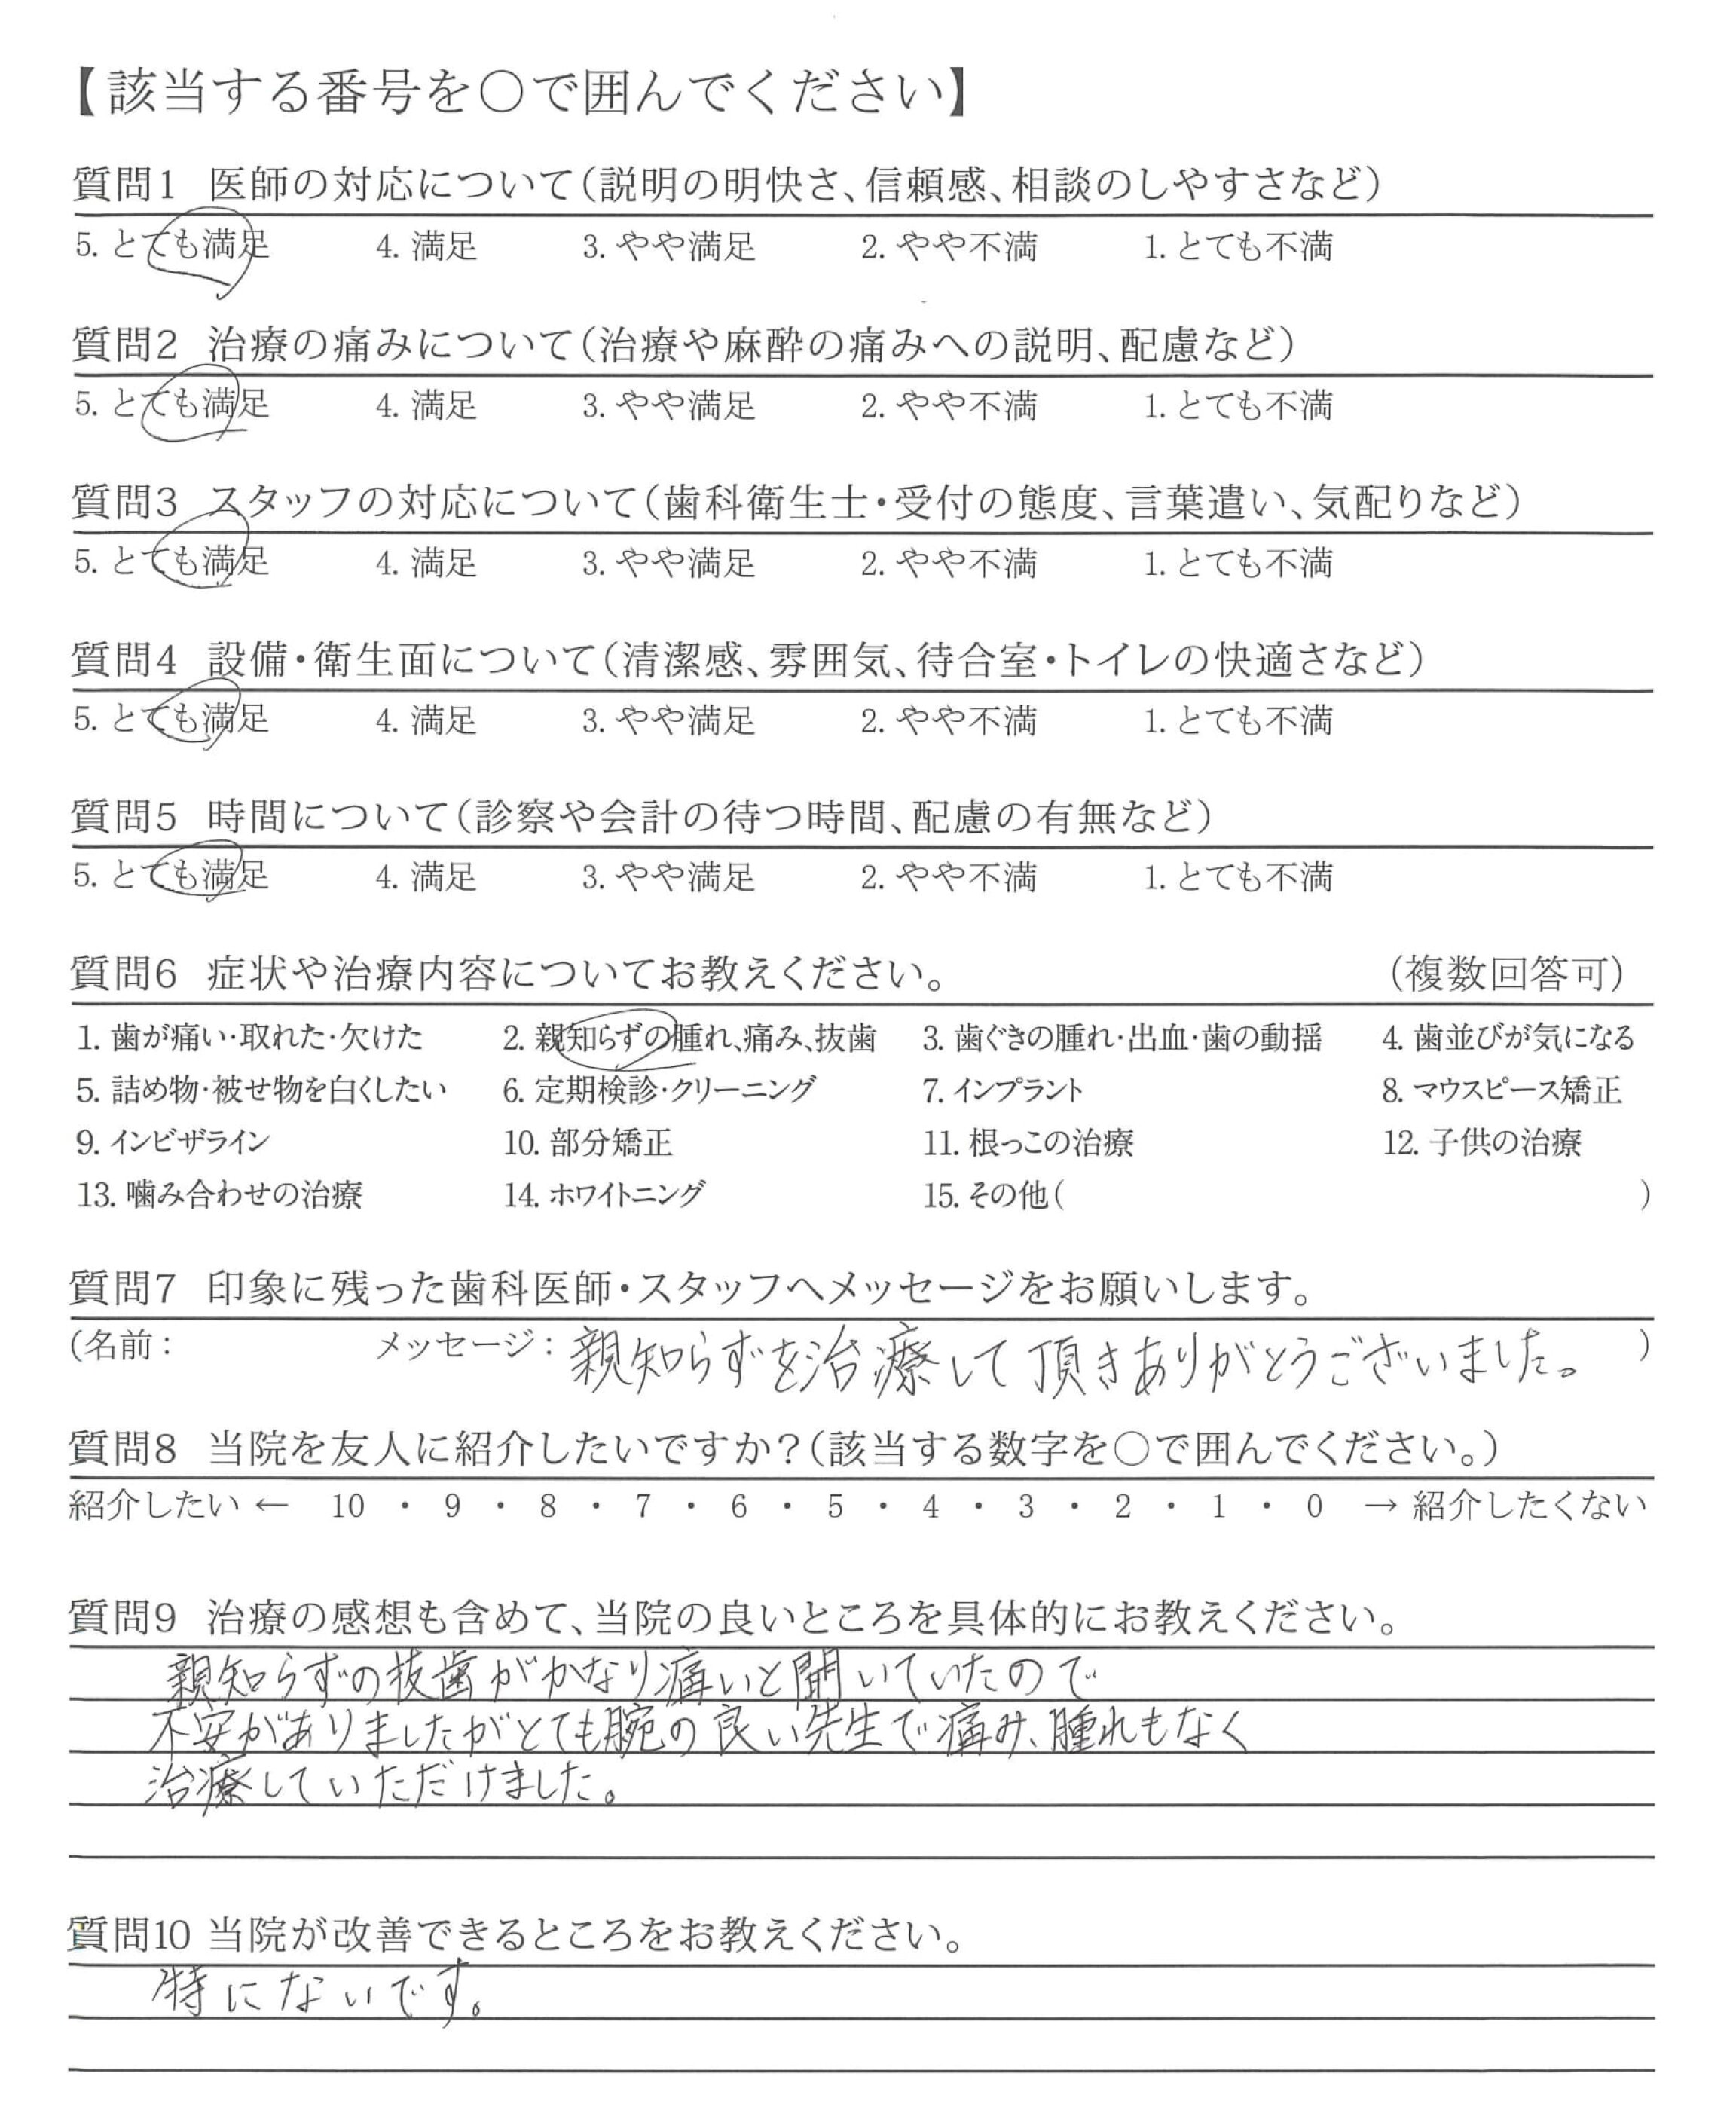 【該当する番号を○で囲んでください】
質問1 医師の対応について（説明の明快さ、信頼感、相談のしやすさなど）
5. とても満足 4. 満足 3. やや満足 2. やや不満 1. とても不満
質問2 治療の痛みについて（治療や麻酔の痛みへの説明、配慮など）
5. とても満足 4. 満足 3. やや満足 2. やや不満 1. とても不満
質問3 スタッフの対応について（歯科衛生士・受付の態度、言葉遣い、気配りなど）
5. とても満足 4. 満足 3. やや満足 2. やや不満 1. とても不満
質問4 設備・衛生面について（清潔感、雰囲気、待合室・トイレの快適さなど）
5. とても満足 4. 満足 3. やや満足 2. やや不満 1. とても不満
質問5 時間について（診察や会計の待つ時間、配慮の有無など）
5. とても満足 4. 満足 3. やや満足 2. やや不満 1. とても不満
質問6 症状や治療内容についてお教えください。 （複数回答可）
1. 歯が痛い・取れた・欠けた 2. 親知らずの腫れ、痛み、抜歯 3. 歯ぐきの腫れ・出血・歯の動揺 4. 歯並びが気になる
5. 詰め物・被せ物を白くしたい 6. 定期検診・クリーニング 7. インプラント 8. マウスピース矯正
9. インビザライン 10. 部分矯正 11. 根っこの治療 12. 子供の治療
13. 噛み合わせの治療 14. ホワイトニング 15. その他（ ）
質問7 印象に残った歯科医師・スタッフへメッセージをお願いします。
（名前： メッセージ：親知らずを治療して頂きありがとうございました。 ）
質問8 当院を友人に紹介したいですか？（該当する数字を○で囲んでください。）
紹介したい ← 10 ・ 9 ・ 8 ・ 7 ・ 6 ・ 5 ・ 4 ・ 3 ・ 2 ・ 1 ・ 0 → 紹介したくない
質問9 治療の感想も含めて、当院の良いところを具体的にお教えください。
親知らずの抜歯がかなり痛いと聞いていたので
不安がありましたがとても腕の良い先生で痛み、腫れもなく
治療していただけました。
質問10 当院が改善できるところをお教えください。
特にないです。